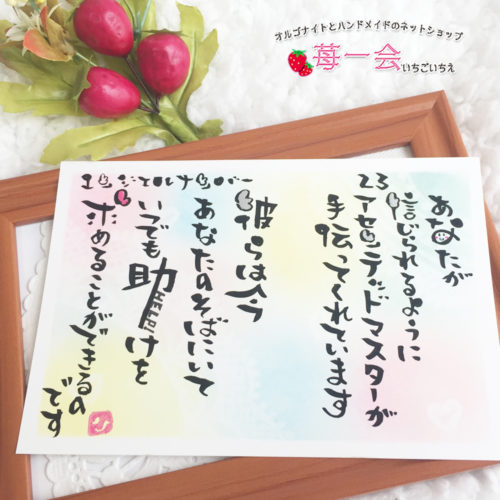 オルゴナイトとハンドメイドのネットショップ
苺一会
いちごいちえ
エンジェルナンバー
23
あなたが
信じられるように
アセンデッドマスターが
手伝ってくれています
彼らは今
あなたのそばにいて
いつでも助けを
求めることができるの
です